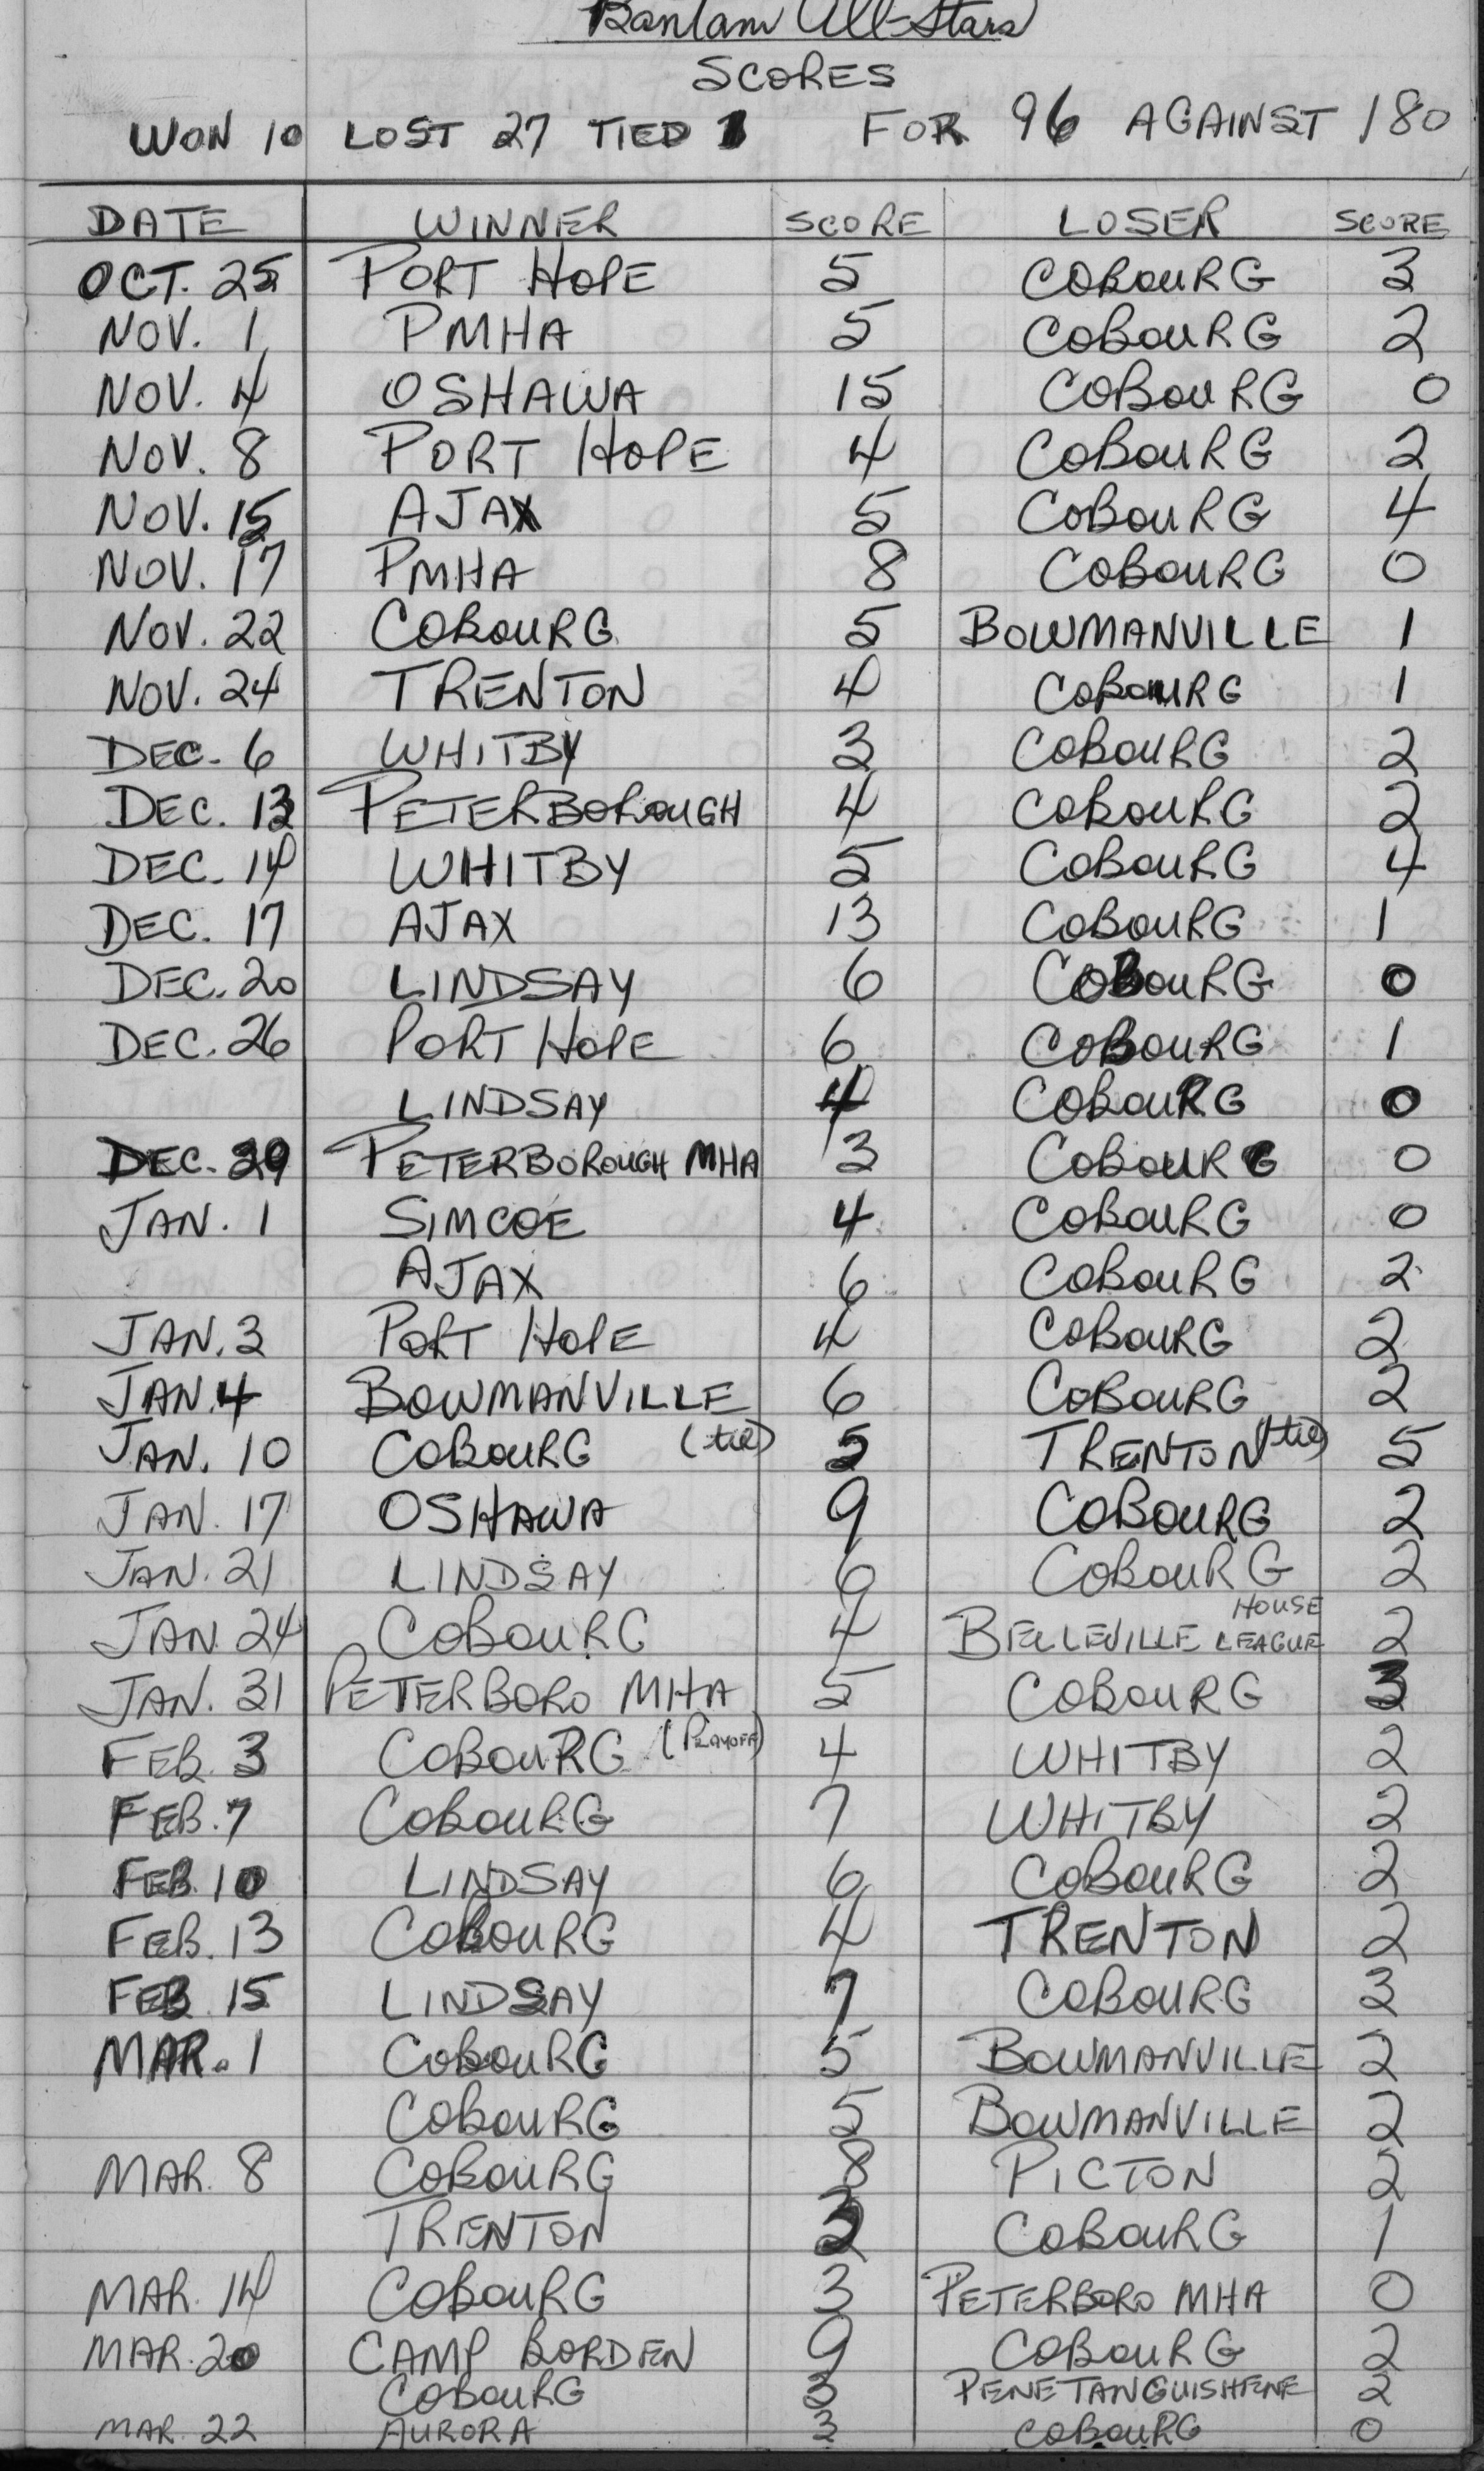 Bantam All-Stars
SCORES
WON 10 LOST 27 TIED 1 FOR 96 AGAINST 180
DATE WINNER SCORE LOSER SCORE
OCT. 25 PORT HOPE 5 COBOURG 3
NOV. 1 PMHA 5 COBOURG 2
NOV. 4 OSHAWA 15 COBOURG 0
NOV. 8 PORT HOPE 4 COBOURG 2
NOV. 15 AJAX 5 COBOURG 4
NOV. 17 PMHA 8 COBOURG 0
NOV. 22 COBOURG 5 BOWMANVILLE 1
NOV. 24 TRENTON 4 COBOURG 1
DEC. 6 WHITBY 3 COBOURG 2
DEC. 13 PETERBOROUGH 4 COBOURG 2
DEC. 14 WHITBY 5 COBOURG 4
DEC. 17 AJAX 13 COBOURG 1
DEC. 20 LINDSAY 6 COBOURG 0
DEC. 26 PORT HOPE 6 COBOURG 1
LINDSAY 4 COBOURG 0
DEC. 29 PETERBOROUGH MHA 3 COBOURG 0
JAN. 1 SIMCOE 4 COBOURG 0
AJAX 6 COBOURG 2
JAN. 3 PORT HOPE 4 COBOURG 2
JAN. 4 BOWMANVILLE 6 COBOURG 2
JAN. 10 COBOURG (tie) 5 TRENTON (tie) 5
JAN. 17 OSHAWA 9 COBOURG 2
JAN. 21 LINDSAY 6 COBOURG 2
JAN. 24 COBOURG 4 BELLEVILLE HOUSE LEAGUE 2
JAN. 31 PETERBORO MHA 5 COBOURG 3
FEB. 3 COBOURG (PLAYOFF) 4 WHITBY 2
FEB. 7 COBOURG 7 WHITBY 2
FEB. 10 LINDSAY 6 COBOURG 2
FEB. 13 COBOURG 4 TRENTON 2
FEB 15 LINDSAY 7 COBOURG 3
MAR. 1 COBOURG 5 BOWMANVILLE 2
COBOURG 5 BOWMANVILLE 2
MAR. 8 COBOURG 8 PICTON 2
TRENTON 3 COBOURG 1
MAR. 14 COBOURG 3 PETERBORO MHA 0
MAR. 20 CAMP BORDEN 9 COBOURG 2
COBOURG 3 PENETANGUISHENE 2
MAR. 22 AURORA 3 COBOURG 0